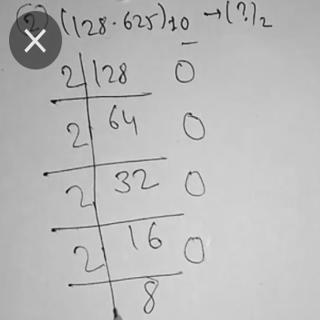 (2) (128.625)10 → (?)2
2 128 0
2 64 0
2 32 0
2 16 0
8